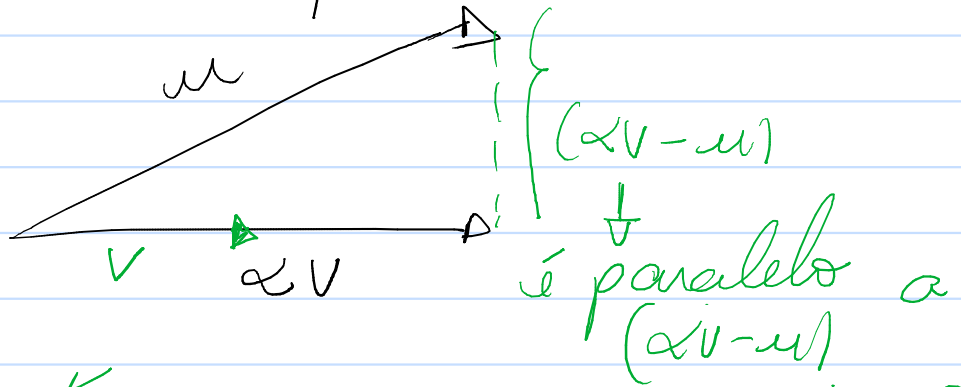 u
(αV-u)
V
αV
é paralelo a
(αV-u)